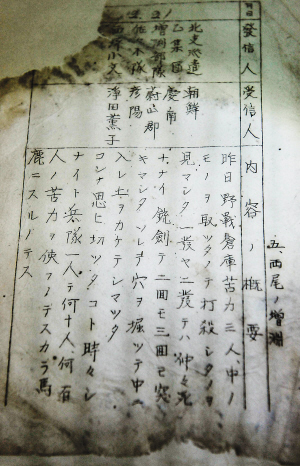 五、西尾ノ増淵
月日
發信人
受信人
内容ノ概要
北支派遣
乙集団
増淵部隊
朝鮮
慶南
蔚山郡
彦陽
浮田薫子
昨日野戰倉庫苦力三人、中ノ
モノヲ取ツタノデ打殺シタノヲ
見マシタ一發ヤ二發デハ仲々死
ナナイ銃劍デ二回モ三回モ突
キマシタソレヲ穴ヲ掘ツテ中ヘ
入レ土ヲカケテシマツタ
コンナ思ヒ切ツタコト時々シ
ナイト兵隊一人デ何十人、何百
人ノ苦力ヲ使フノデスカラ馬
鹿ニスルノデス